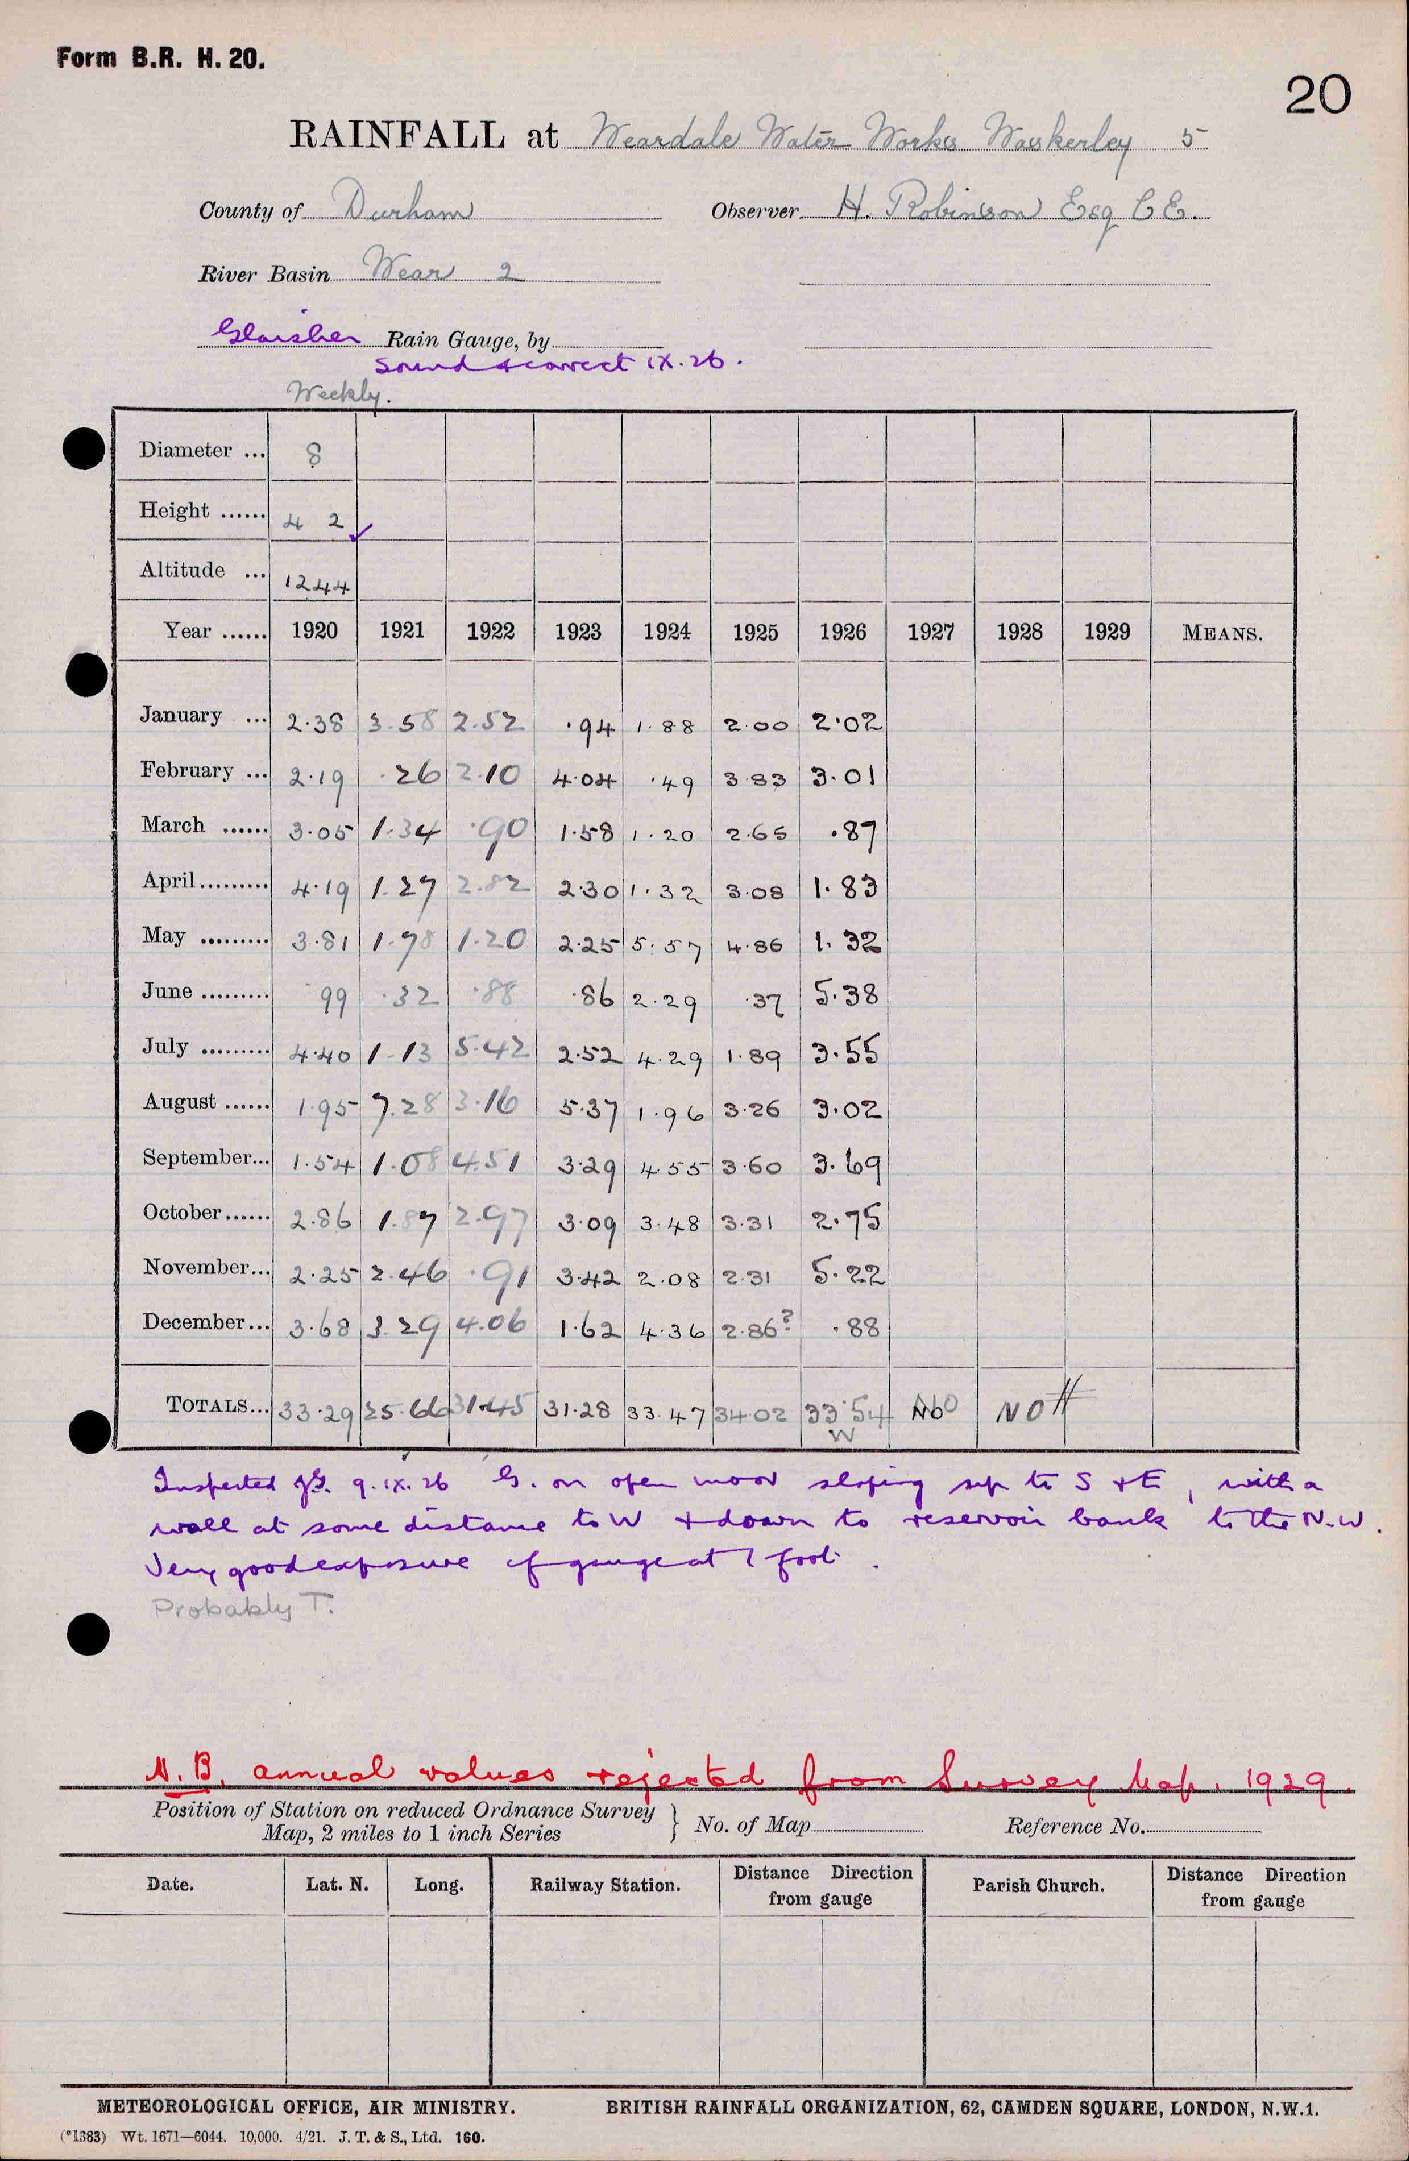 Form B.R. H. 20.
20
RAINFALL at Weardale Water Works Waskerley 5
County of Durham Observer H. Robinson Esq C E.
River Basin Wear 2
Glaisher Rain Gauge, by
Sound & correct IX. 26.
Weekly.
Diameter ... 8
Height ...... 4 2 ✓
Altitude ... 1244
Year ...... 1920 1921 1922 1923 1924 1925 1926 1927 1928 1929 MEANS.
January ... 2.38 3.58 2.52 .94 1.88 2.00 2.02
February ... 2.19 .26 2.10 4.04 .49 3.83 3.01
March ...... 3.05 1.34 .90 1.58 1.20 2.65 .87
April ......... 4.19 1.27 2.82 2.30 1.32 3.08 1.83
May ......... 3.81 1.78 1.20 2.25 5.57 4.86 1.32
June ......... .99 .32 .88 .86 2.29 .37 5.38
July ......... 4.40 1.13 5.42 2.52 4.29 1.89 3.55
August ...... 1.95 7.28 3.16 5.37 1.96 3.26 3.02
September... 1.54 1.08 4.51 3.29 4.55 3.60 3.69
October...... 2.86 1.87 2.97 3.09 3.48 3.31 2.75
November... 2.25 2.46 .91 3.42 2.08 2.31 5.22
December... 3.68 3.29 4.06 1.62 4.36 2.86? .88
TOTALS... 33.29 25.66 31.45 31.28 33.47 34.02 33.54 No NO
W
Inspected J.G. 9.ix.26 G. on open moor sloping up to S & E, with a
wall at some distance to W & down to reservoir bank to the N.W.
Very good exposure of gauge at 1 foot.
Probably T.
N.B. annual values rejected from Survey Map. 1929.
Position of Station on reduced Ordnance Survey
Map, 2 miles to 1 inch Series } No. of Map Reference No.
Date. Lat. N. Long. Railway Station. Distance Direction from gauge Parish Church. Distance Direction from gauge
METEOROLOGICAL OFFICE, AIR MINISTRY. BRITISH RAINFALL ORGANIZATION, 62, CAMDEN SQUARE, LONDON, N.W.1.
(*1383) Wt. 1671—6044. 10,000. 4/21. J. T. & S., Ltd. 160.